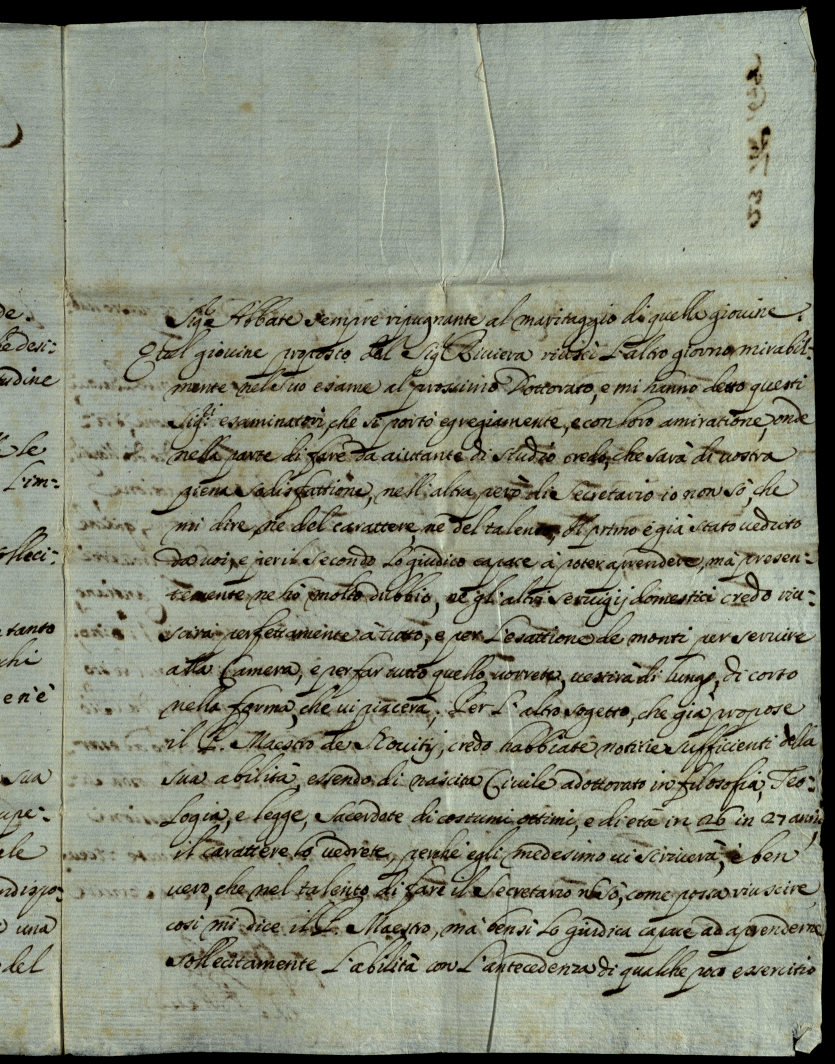 Sigr Abbate sempre ripugnante al maritaggio di quelle giovine.
E tal giovine proposto dal Sigr Riviera riuscì l'altro giorno mirabil-
mente nel suo esame al prossimo Dottorato, e mi hanno detto questi
Sigri esaminatori, che si portò egregiamente, e con loro amiratione, onde
nella parte di fare da aiutante di studio credo, che sarà di vostra
piena sodisfattione, nell'altra però di Secretario io non sò, che
mi dire, ne del carattere, ne del talento, il primo è già stato veduto
da voi, e per il secondo lo giudico capace à poter aprendere, mà presen-
temente ne hò molto dubbio, ne gl'altri servigij domestici credo riu-
scirà perfettamente à tutto, e per l'esattione de monti per servire
alla Camera, e per far tutto quello vorrete, vestirà di lungo, di corto
nella forma, che vi piacerà. Per l'altro sogetto, che già propose
il P. Maestro de, credo habbiate notitie sufficienti della
sua abilità, essendo di nascita Civile adottorato in filosofia, Teo-
logia, e legge, Sacerdote di costumi ottimi, e di età in 26 in 27 anni
il carattere lo vedrete, perche egli medesimo vi scriverà, è ben
vero, che nel talento di fare il Secretario nõ sò, come possa riuscire,
così mi dice il P. Maestro, mà bensì lo giudica capace ad aprenderne
sollecitamente l'abilità con l'antecedenza di qualche poco essercitio
de.
he desi-
tudine
le
l'im-
lleci-
tanto
chi
en'è
sua
ale
una
del